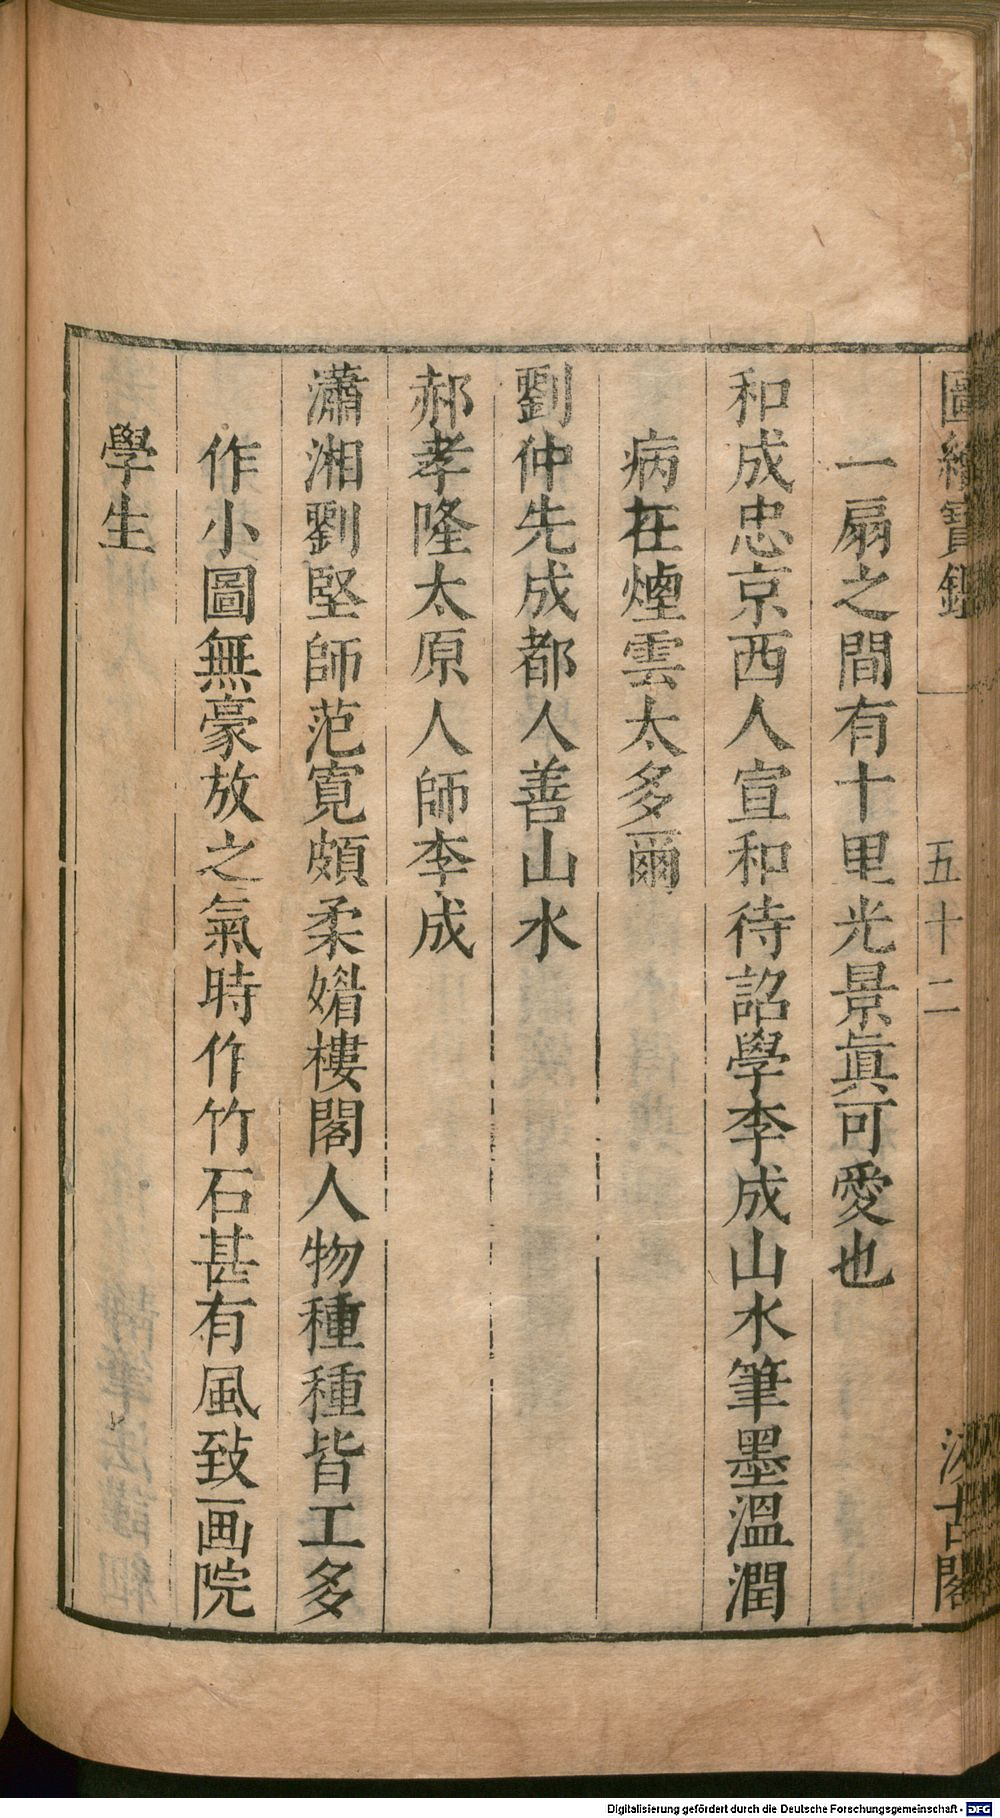 圖繪寶鑑
五十二
汲古閣
一扇之間有十里光景眞可愛也
和成忠京西人宣和待詔學李成山水筆墨溫潤
病在煙雲太多爾
劉仲先成都人善山水
郝孝隆太原人師李成
瀟湘劉堅師范寛頗柔媚樓閣人物種種皆工多
作小圖無豪放之氣時作竹石甚有風致画院
學生
Digitalisierung gefördert durch die Deutsche Forschungsgemeinschaft - DFG